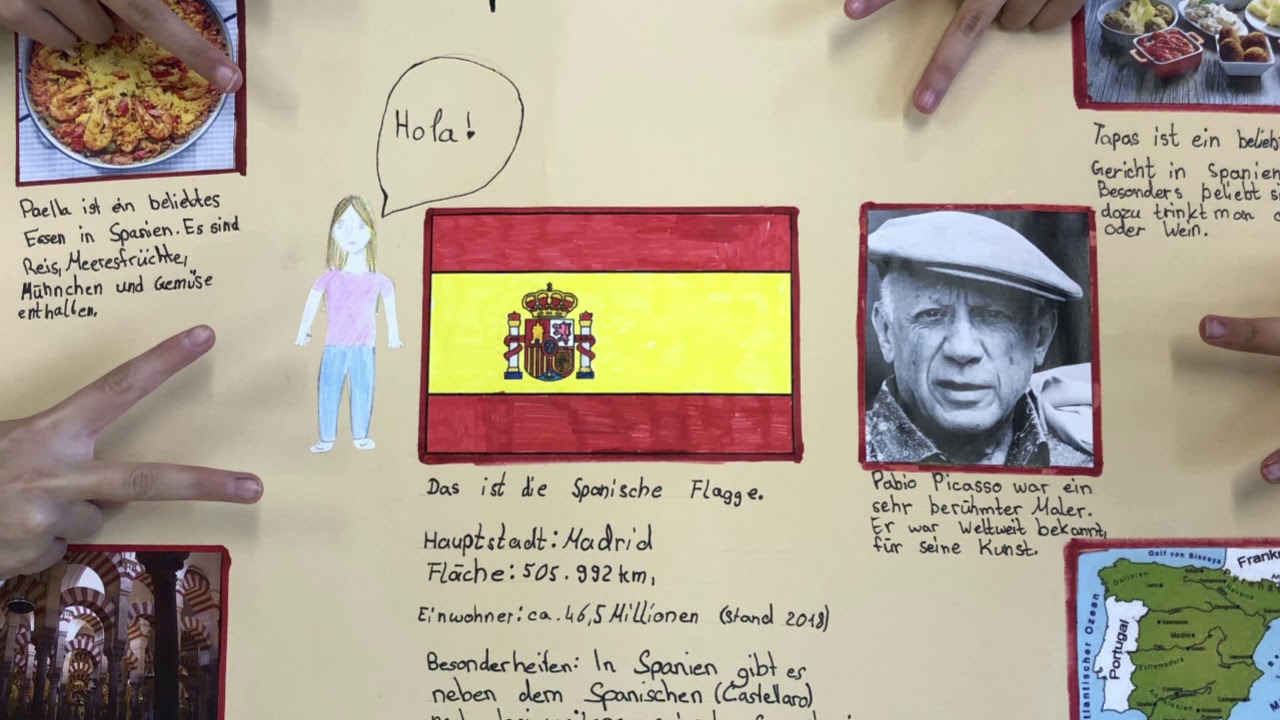 Hola!
Paella ist ein beliebtes
Essen in Spanien. Es sind
Reis, Meeresfrüchte,
Mühnchen und Gemüse
enthalten.
Tapas ist ein belieb
Gericht in Spanien
Besonders beliebt si
dazu trinkt man
oder Wein.
Das ist die Spanische Flagge.
Hauptstadt: Madrid
Fläche: 505.992 km,
Einwohner: ca. 46,5 Millionen (stand 2018)
Besonderheiten: In Spanien gibt es
neben dem Spanischen (Castellano)
Pablo Picasso war ein
sehr berühmter Maler.
Er war Weltweit bekannt,
für seine Kunst.
Golf von Biscaya
Frank
Portugal
tlantischer Ozean
Madrid